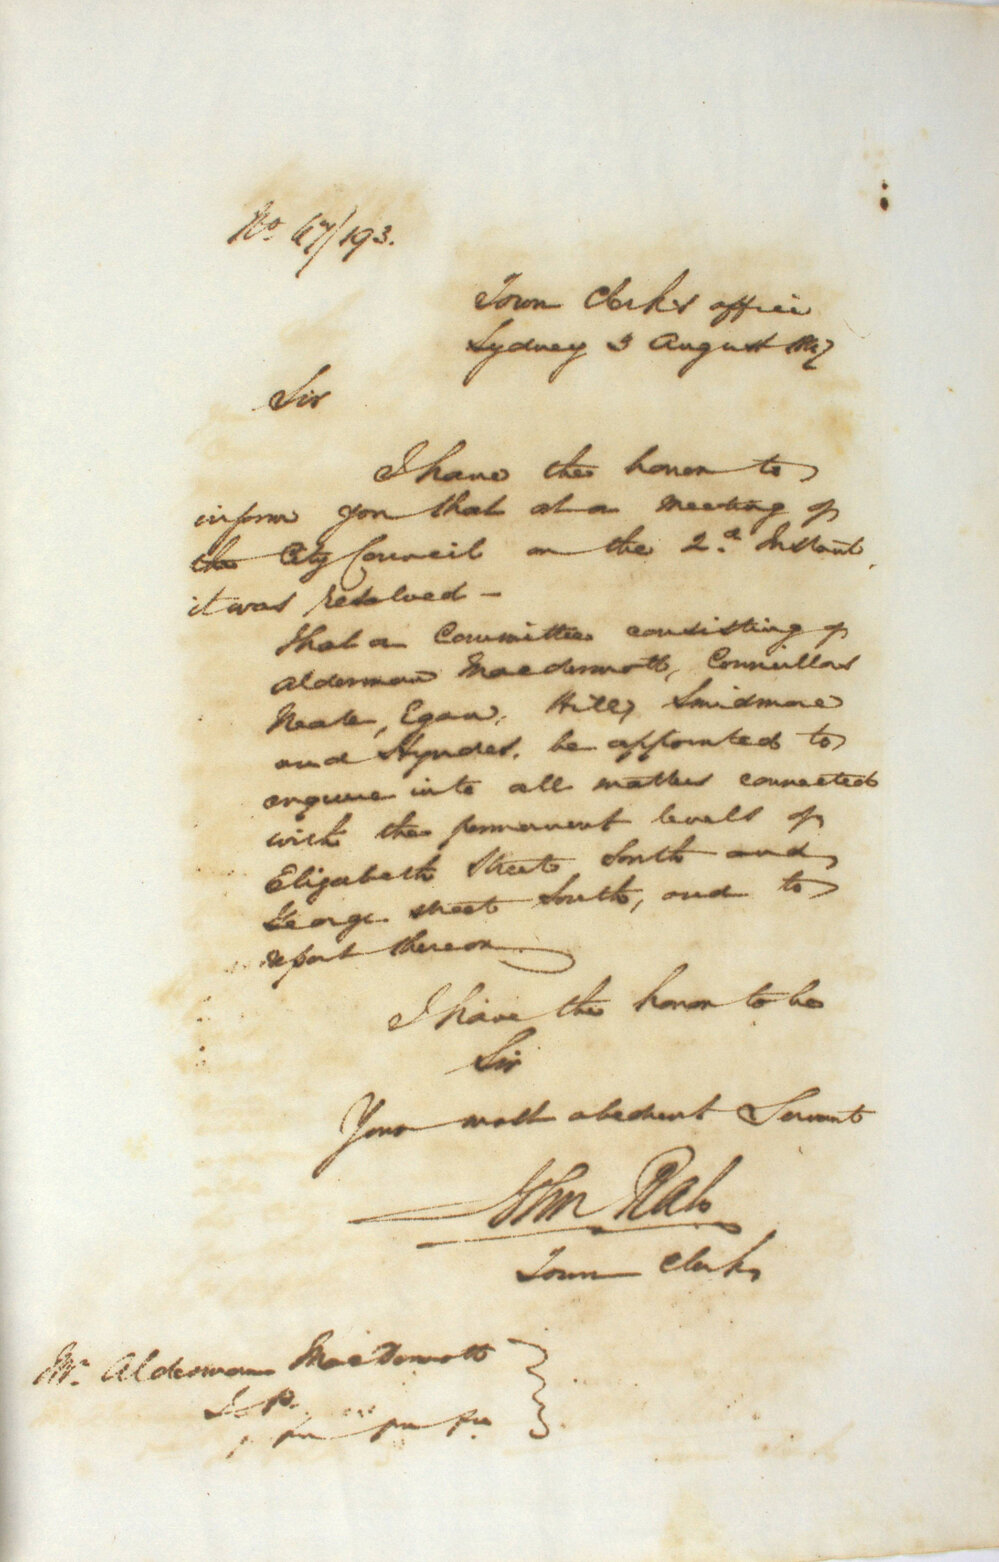 No 47/193.
Town Clerks office
Sydney 3 August 1847
Sir
I have the honor to
inform you that at a meeting of
the City Council on the 2.d Instant,
it was resolved –
that a Committee consisting of
Alderman Macdermott, Councillors
Neale, Egan, Hill, Smidmore
and Hyndes, be appointed to
enquire into all matters connected
with the permanent levels of
Elizabeth Street South and
George street South, and to
report thereon
I have the honor to be
Sir
Your most obedient Servant
John Rae
Town Clerk
Mr. Alderman MacDermott
J. P.